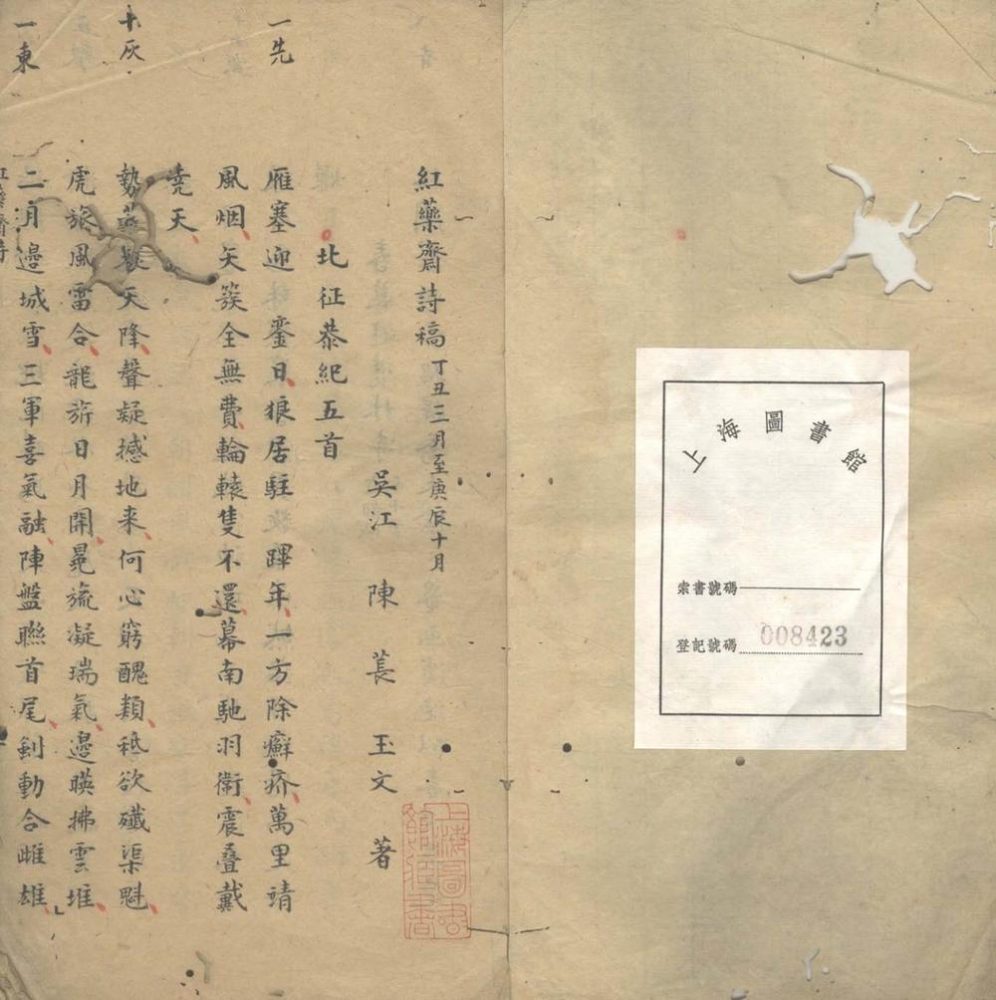 上海圖書館
索書號碼
登記號碼 008423
紅藥齋詩稿 丁丑三月至庚辰十月
吳江 陳萇玉文著
上海圖書館藏書
北征恭紀五首
一先
雁塞迎鑾日狼居駐蹕年一方除癬疥萬里靖
風烟矢簇全無費輪轅隻不還幕南馳羽衛震叠戴
堯天
十灰
勢天降聲疑撼地来何心窮醜類秪欲殱渠魁
虎旅風雷合龍旂日月開冕旒凝瑞氣邊暎拂雲堆
一東
二月邊城雪三軍喜氣融陣盤聮首尾劍動合雌雄